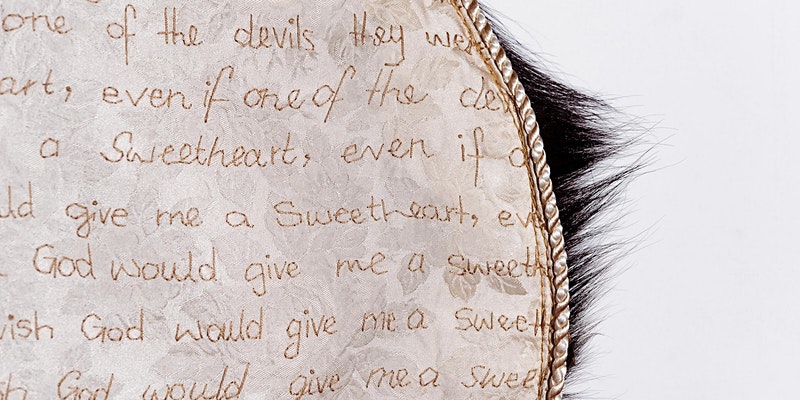 one of the devils they wer
art, even if one of the dev
a Sweetheart, even if o
uld give me a Sweetheart, ev
God would give me a Sweeth
wish God would give me a Sweeth
sh God would give me a Sweet